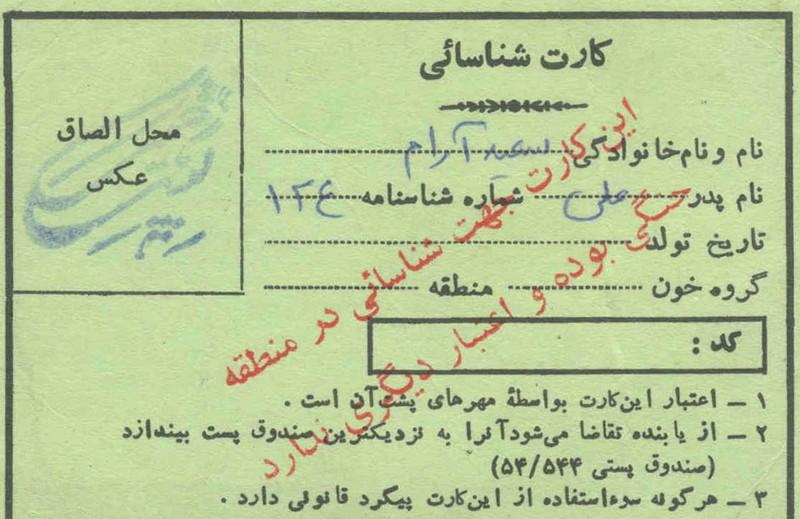 کارت شناسائی
محل الصاق
عکس
نام و نام‌خانوادگی سعید آرام
نام پدر علی شماره شناسنامه ۱۲۴
تاریخ تولد
گروه خون منطقه
کد :
این کارت جهت شناسائی در منطقه
جنگی بوده و اعتبار دیگری ندارد
۱ ــ اعتبار این‌کارت بواسطهٔ مهرهای پشت‌آن است .
۲ ــ از یابنده تقاضا می‌شودآنرا به نزدیکترین صندوق پست بیندازد
(صندوق پستی ۵۴/۵۴۴)
۳ ــ هرگونه سوءاستفاده از این‌کارت پیگرد قانونی دارد .